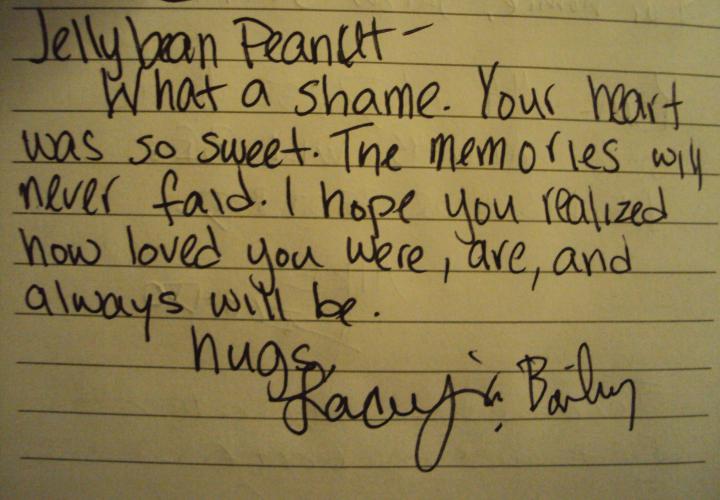 Jellybean Peanut-
What a shame. Your heart
was so sweet. The memories will
never faid. I hope you realized
how loved you were, are, and
always will be.
hugs,
Lacey & Bailey